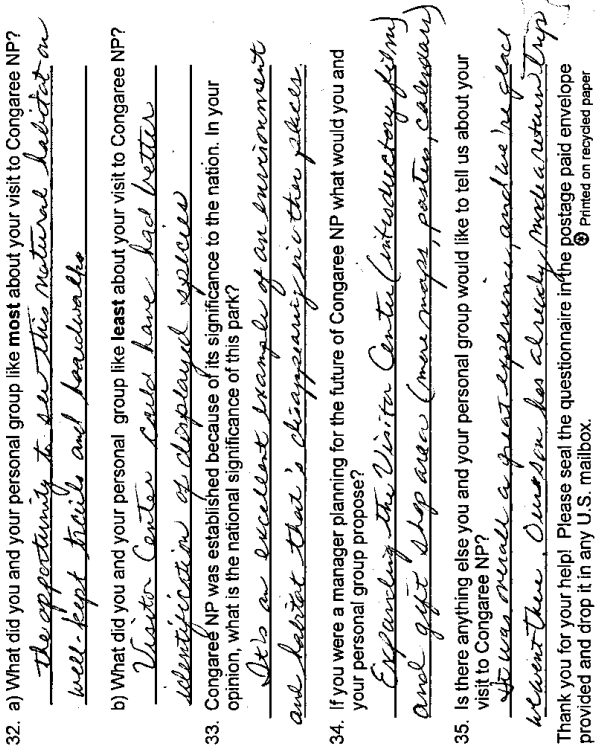 32. a) What did you and your personal group like most about your visit to Congaree NP?
the opportunity to see this natural habitat on
well-kept trails and boardwalks
b) What did you and your personal group like least about your visit to Congaree NP?
Visitor Center could have had better
identification of displayed species
33. Congaree NP was established because of its significance to the nation. In your
opinion, what is the national significance of this park?
It's an excellent example of an environment
and habitat that's disappearing in other places.
34. If you were a manager planning for the future of Congaree NP what would you and
your personal group propose?
Expanding the Visitor Center (introductory film)
and gift shop area (more maps, posters, calendars)
35. Is there anything else you and your personal group would like to tell us about your
visit to Congaree NP?
It was overall a great experience, and we're glad
we went there. Our son has already made a return trip
Thank you for your help! Please seal the questionnaire in the postage paid envelope
provided and drop it in any U.S. mailbox.
Printed on recycled paper